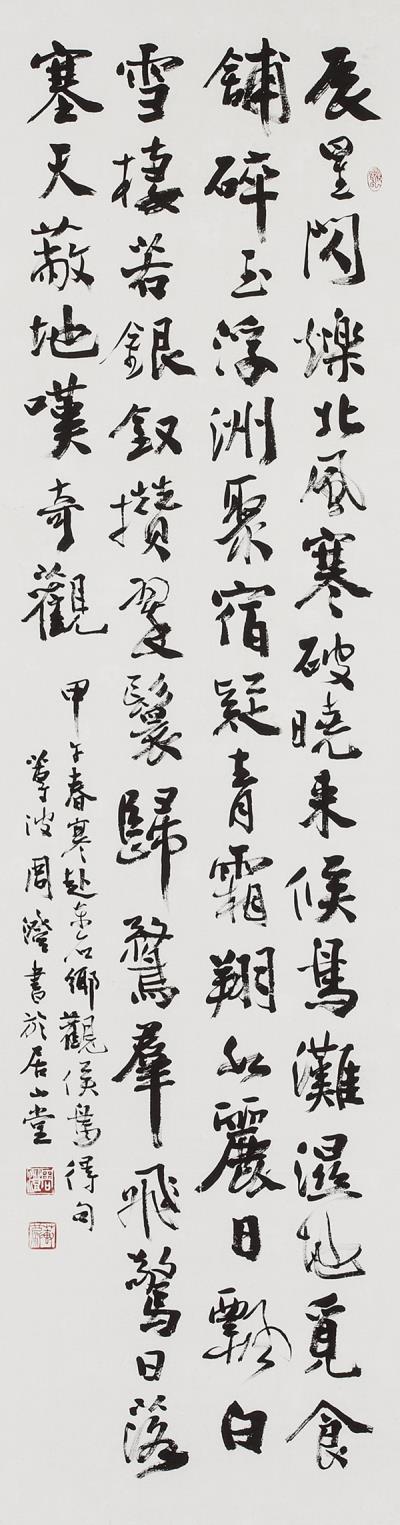 辰星閃爍北風寒破曉來候鳥灘濕地覓食
鋪碎玉浮洲聚宿疑青霜翔如麗日飄白
雪棲若銀釵攢翠鬟歸鶩群飛驚日落
塞天蔽地嘆奇觀
甲午春寒赴金石鄉觀候鳥得句
蓴波周澄書於居山堂